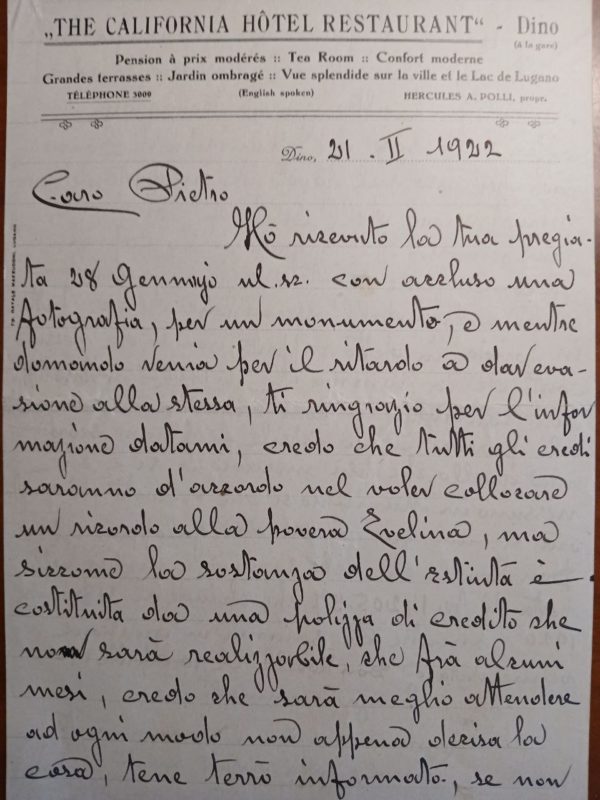 „THE CALIFORNIA HÔTEL RESTAURANT“ - Dino
(à la gare)
Pension à prix modérés :: Tea Room :: Confort moderne
Grandes terrasses :: Jardin ombragé :: Vue splendide sur la ville et le Lac de Lugano
TÉLÉPHONE 3009 (English spoken) HERCULES A. POLLI, propr.
Dino, 21. II 1922
Caro Pietro
Hò ricevuto la tua pregia-
ta 28 Gennajo ul. sc. con accluso una
fotografia, per un monumento, e mentre
domando venia per il ritardo à dar eva-
sione alla stessa, ti ringrazio per l'infor
mazione datami, credo che tutti gli eredi
saranno d'accordo nel voler collocare
un ricordo alla povera Evelina, ma
siccome la sostanza dell'Estinta è
costituita da una polizza di credito che
non sarà realizzabile, che frà alcuni
mesi, credo che sarà meglio attendere
ad ogni modo non appena decisa la
cosa, tene terrò informato, se non